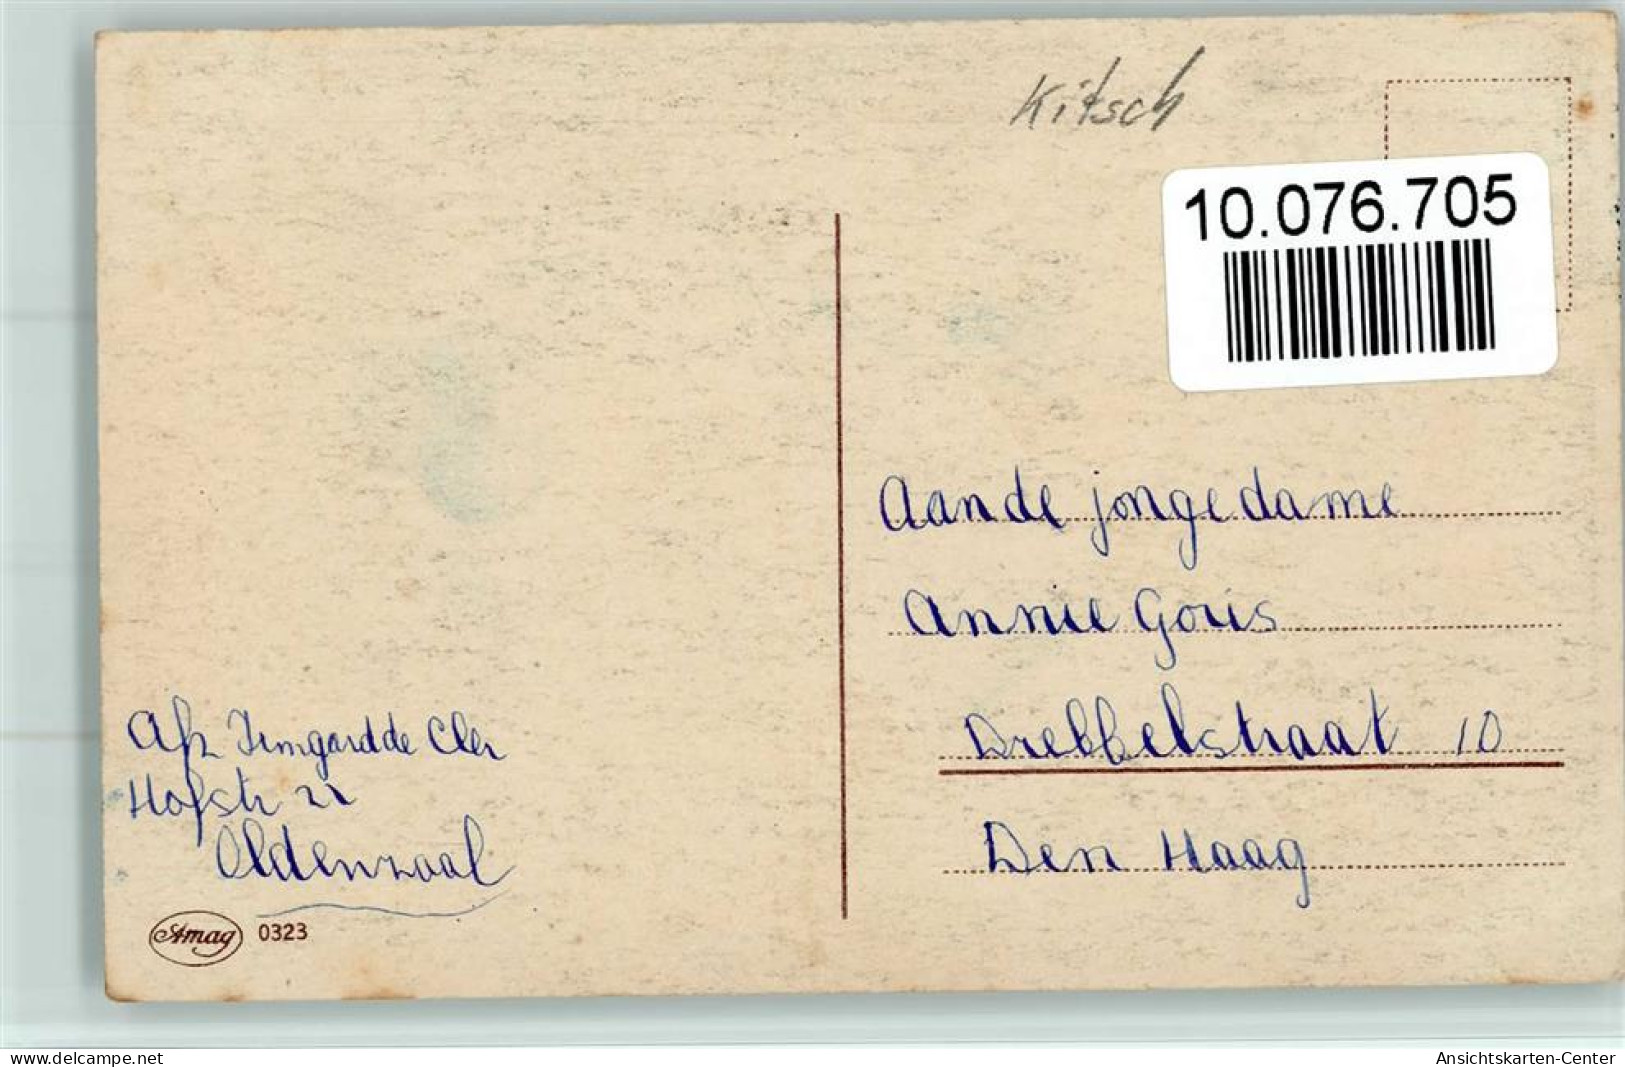 Kitsch
10.076.705
Aan de jongedame
Annie Goris
Drebbelstraat 10
Den Haag
Afz Irmgard de Cler
Hofstr 22
Oldenzaal
Amag 0323
www.delcampe.net
Ansichtskarten-Center